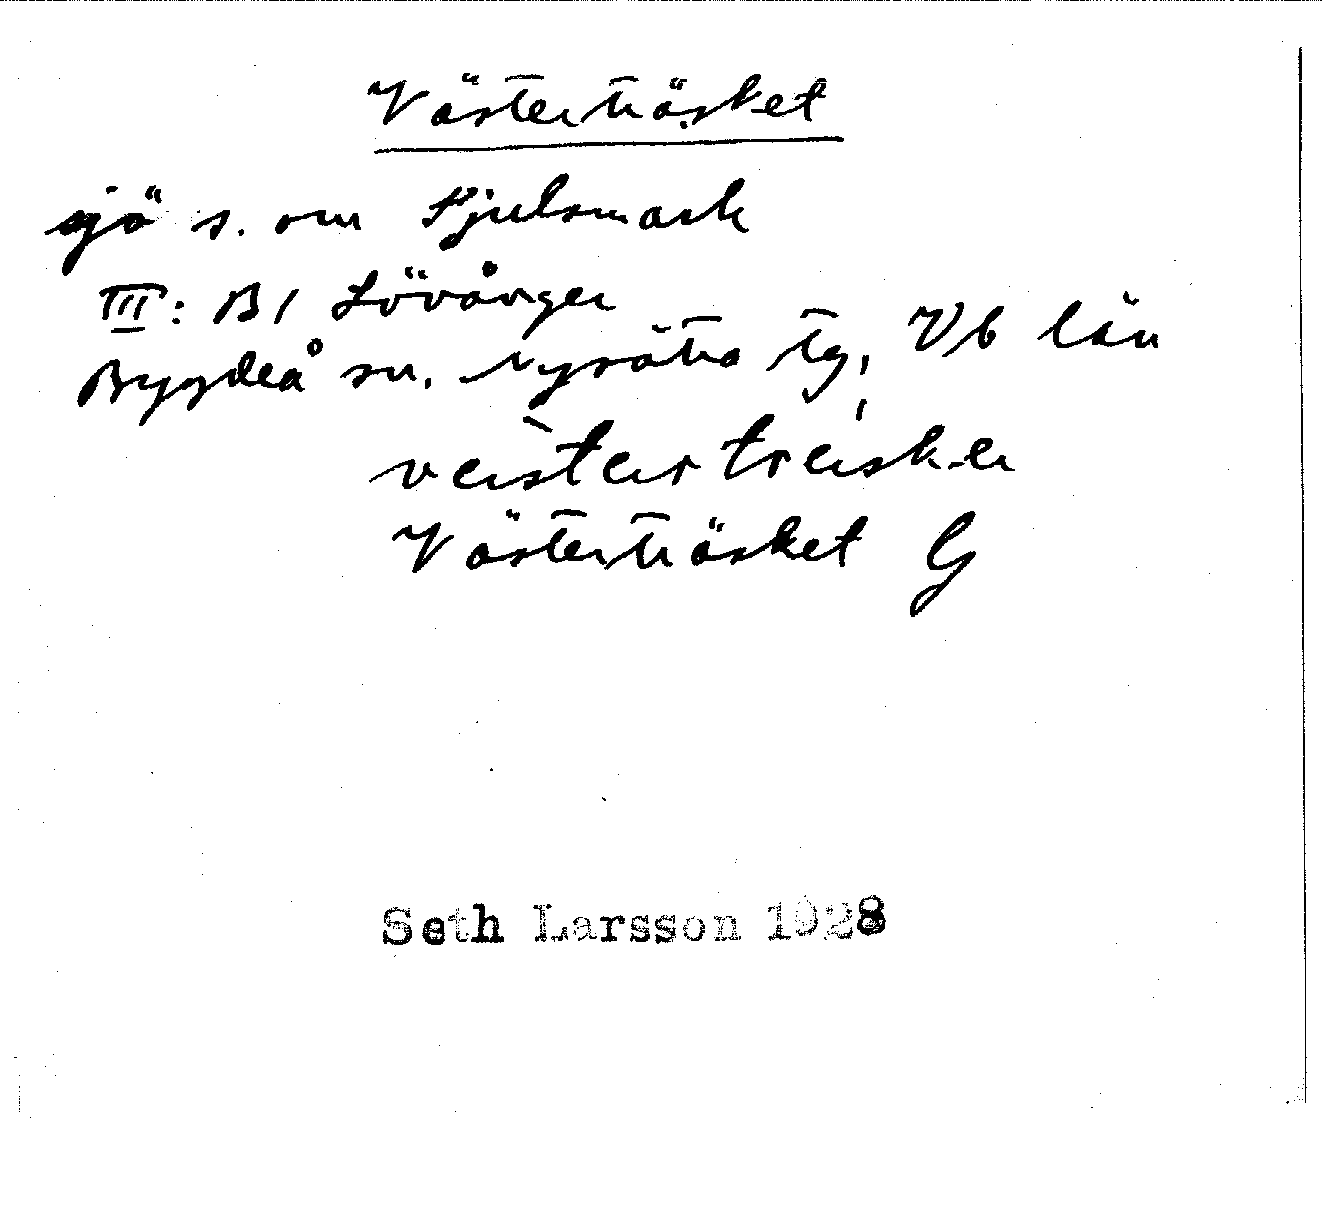 Västerträsket
sjö s. om Sjulsmark
III: B1 Lövånger
Bygdeå sn, Nysätra tg, Vb län
Västerträsket G
Seth Larsson 1928